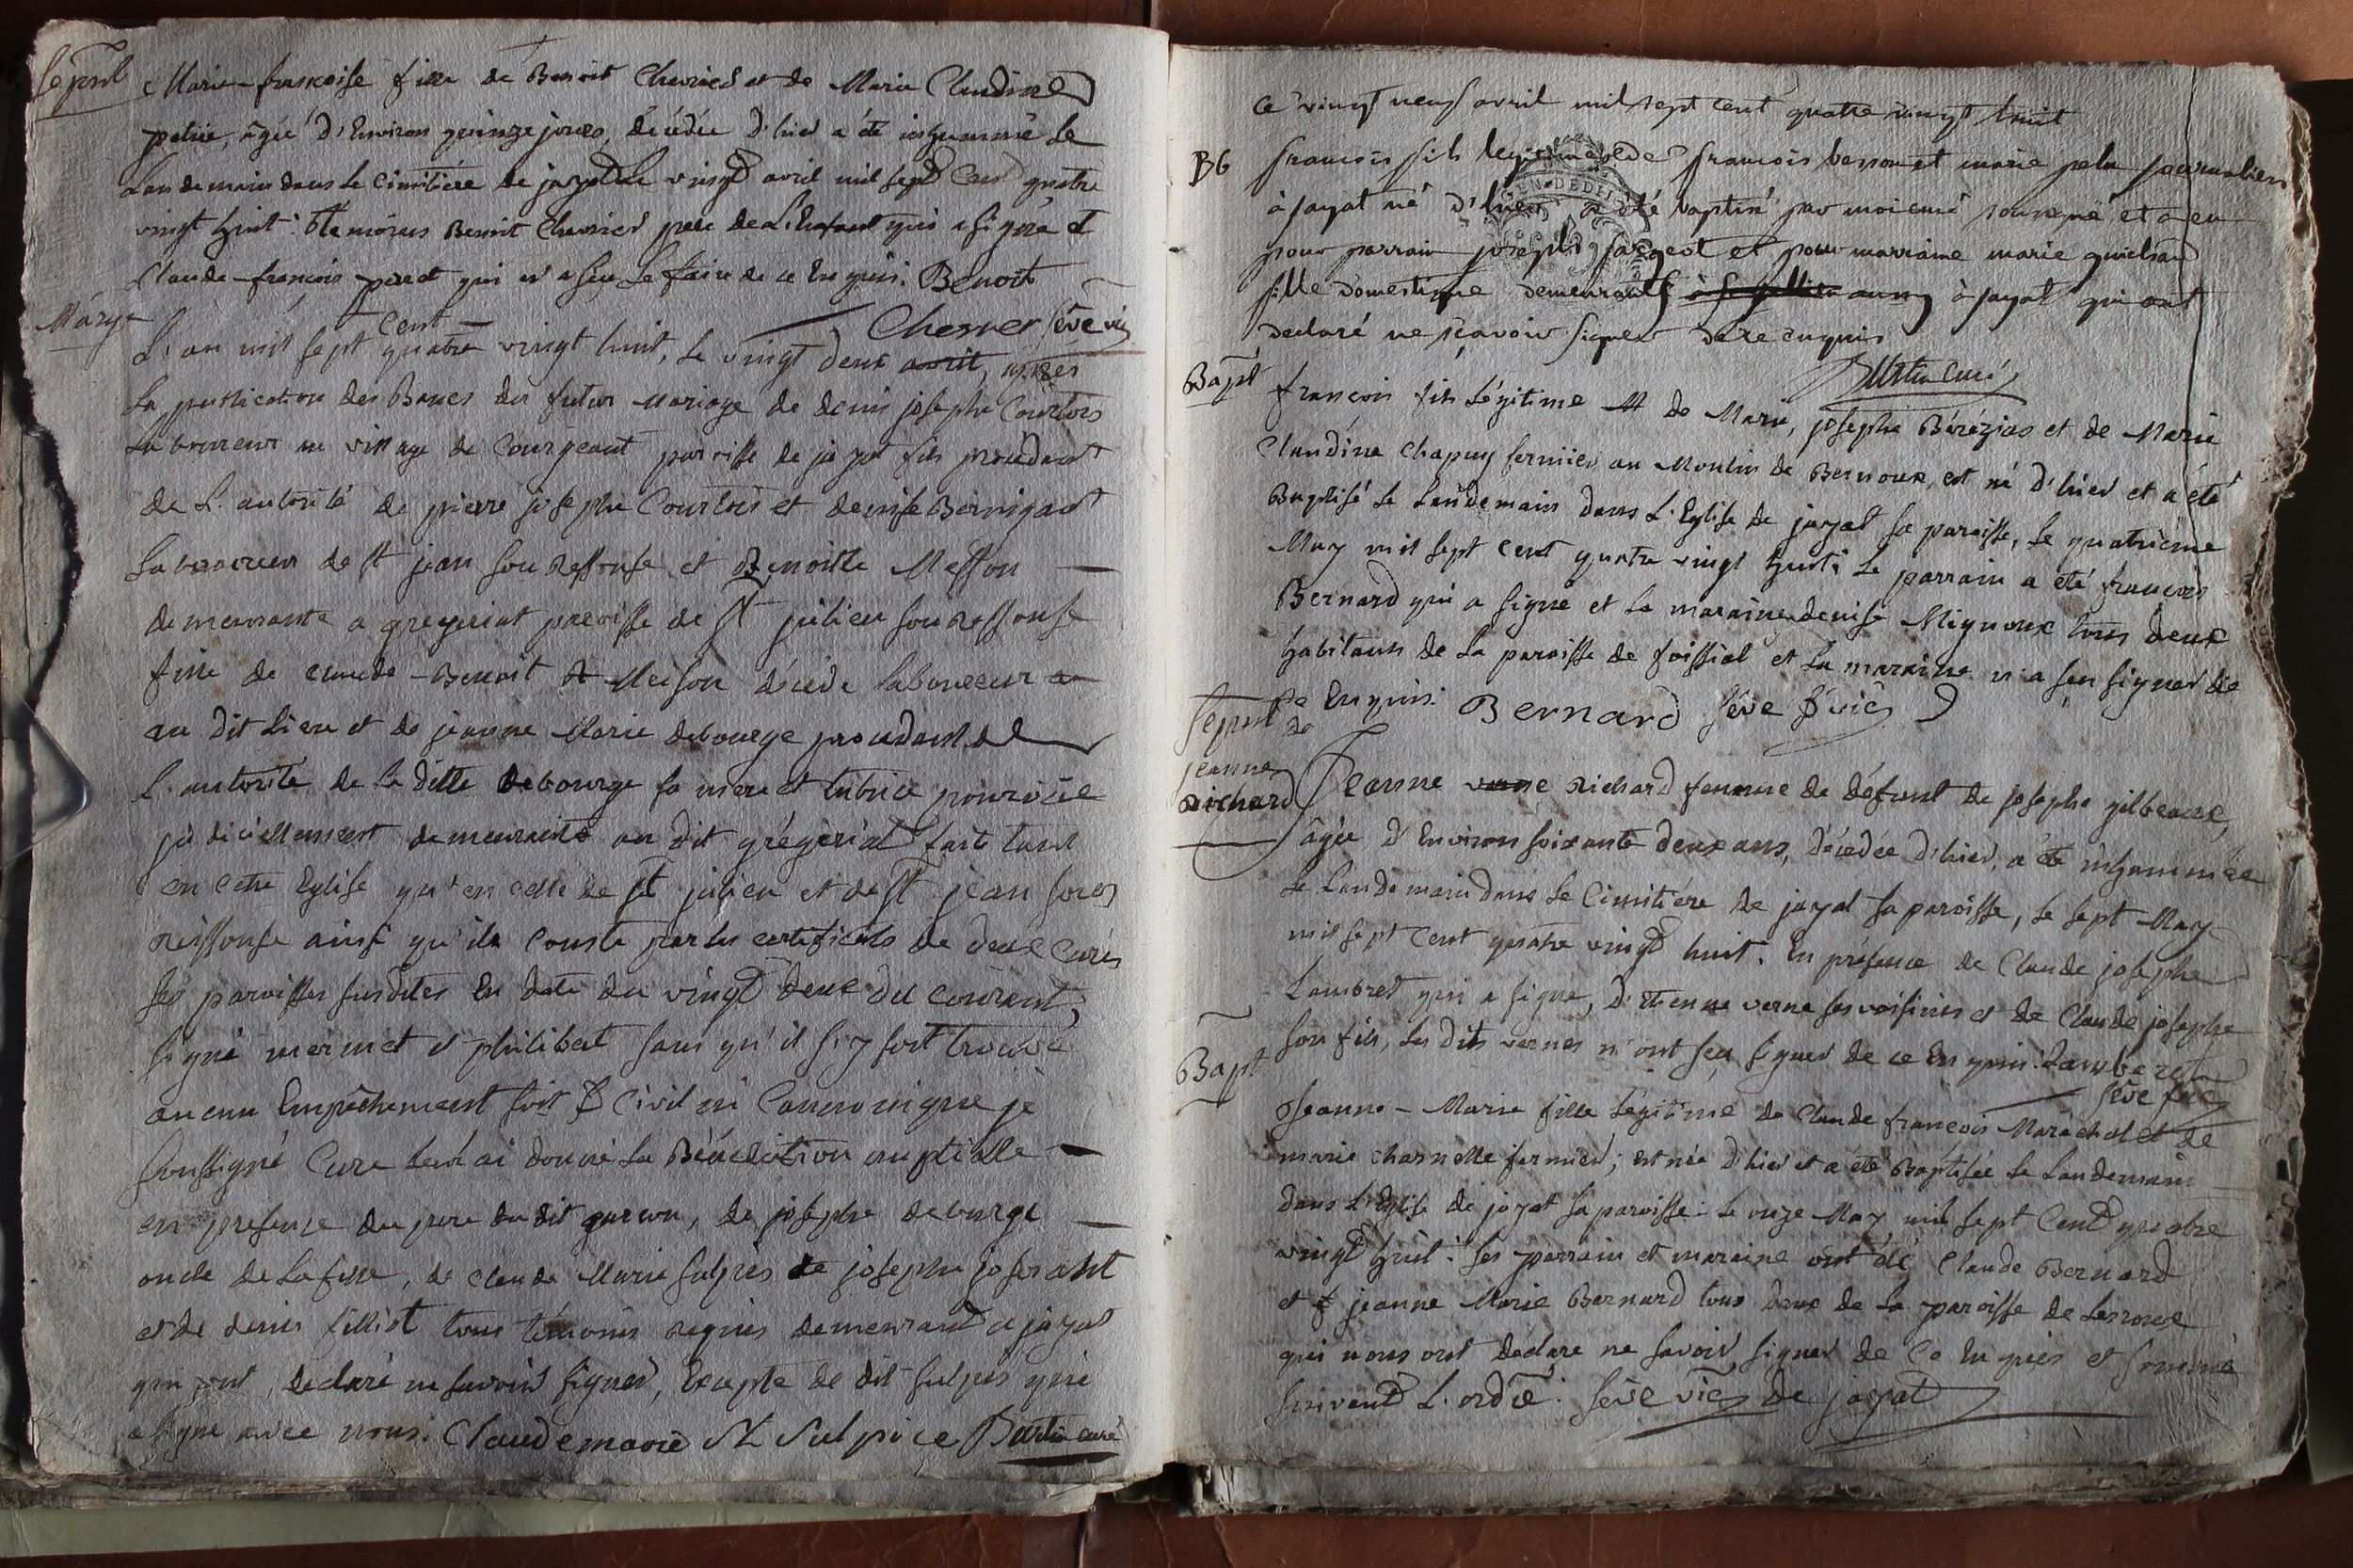 Sepul
Marie-francoise fille de Benoit Chevrier et de Marie Claudine
petire, agée d'Environ quinze jours, décédée d'hier a été inhummée le
Landemain dans le Cimitière de jayat Le vingt avril mil sept Cent quatre
vingt huit: témoins Benoit Chevrier pere de L'Enfant qui a signé et
Claude-françois peret qui n'a sçu Le faire de ce Enquis. Benoit
Chevrier sève vic
Mary
L'an mil sept cent quatre vingt huit, le vingt deux avril, après
la publication des Bancs du futur Mariage de denis josephe Courtois
Laboureur au village de Courgeant paroisse de jayat fils procédant
de L'autorité de pierre josephe Courtois et denise Bernigaut
Laboureur de st jean sou Ressouse et Benoitte Messon
demeurante a gregeriat paroisse de st julien sou Ressouse
fille de claude-Benoit Meisson décédé laboureur
au dit Lieu et de jeanne Marie debourge procedant de
L'autorité de la ditte debourge sa mere et tutrice pourvüe
judiciellement demeurante au dit grégèriat faite tant
en cette Eglise qu'en celle de st julien et de st jean sous
reissouse ainsi qu'ils Conste par les certificats de deux Curés
des paroisses susdites En date du vingt deux du courent,
signé mermet et philibert sans qu'il s'y soit trouvé
aucun Empêchement soit Civil ni Canonnique je
soussigné Cure leur ai donné la Bénédiction nuptialle
en presense du pere du dit garcon, de josephe debourge
oncle de La fille, de claude Marie sulpis de josephe joserant
et de denis fillist tous témoins requis demeurant a jayat
qui ont declaré ne savoir signer, Excepte de dit sulpis qui
a signe avec nous: Claudemarie St Sulpice Burtin curé
ce vingt neuf avril mil sept cent quatre vingt huit
B6
francois fils legitime de francois besson et marie pela journaliers
à jayat né d'hier a été baptisé par moi curé soussigné et a eu
pour parrain joseph jargeot et pour marraine marie guichard
fille domestique demeurants à jayat qui ont
declaré ne sçavoir signer de ce enquis
Burtin Curé
Bapt
françois fils Légitime de Marie, josephe Bérézias et de Marie
Claudine Chapuy fermiier au Moulin de Bernoux, est né d'hier et a été
Baptisé Le Landemain dans L'Eglise de jayat sa paroisse, le quatrieme
May mil sept cent quatre vingt huit: Le parrain a été françois
Bernard qui a signé et la maraine denise Mignoux tous deux
habitans de la paroisse de foissiat et La maraine n'a sçu signer de
ce Enquis: Bernard sève vic
Sepul de
jeanne
Richard
Jeanne Richard femme de défunt de josephe gilbeaux,
âgée d'Environ soixante deux ans, décédée d'hier, a été inhummée
le Landemain dans Le Cimitière de jayat sa paroisse, le sept May
mil sept Cent quatre vingt huit. En présence de Claude josephe
Lambret qui a signe, d'etienne verne ses voisins et de Claude josephe
son fils, Les dits vernes n'ont sçu signer de ce Enquis: Lamberet
sève vic
Bapt
Jeanne-Marie fille Légitime de Claude françois Marechal et de
marie charnelle fermier; est née d'hier et a été Baptisée Le Landemain
dans L'Eglise de jayat sa paroisse: Le onze May mil sept Cent quatre
vingt huit: ses parrain et maraine ont été Claude Bernard
et jeanne Marie Bernard tous deux de la paroisse de Lescroux
qui nous ont déclare ne savoir signer de Ce Enquis et sommé
suivent L'ordce: sève vic de jayat